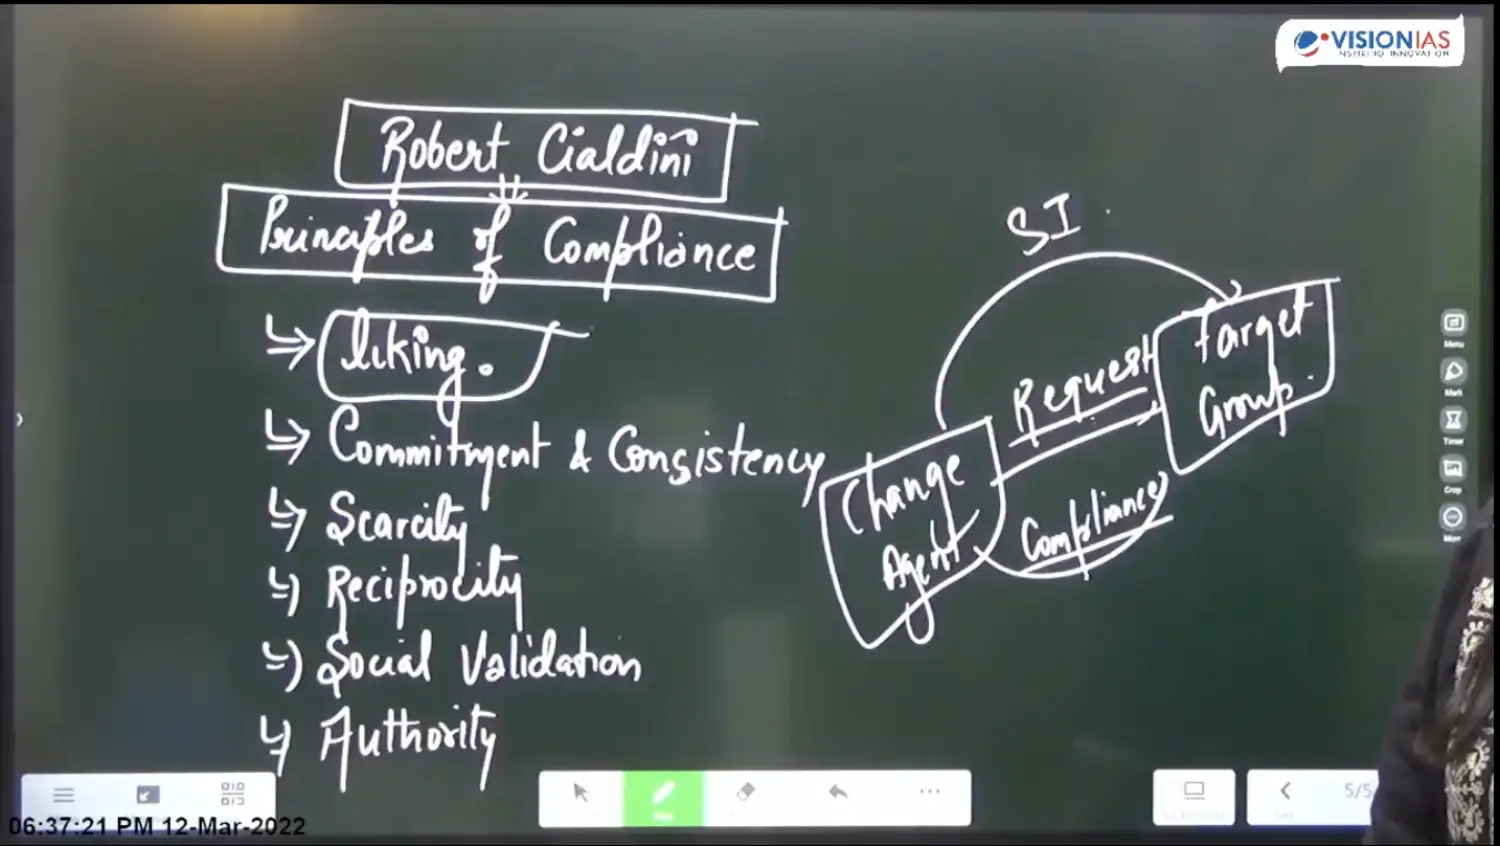 VISIONIAS
INSPIRING INNOVATION
Robert Cialdini
Principles of Compliance
liking.
Commitment & Consistency
Scarcity
Reciprocity
Social Validation
Authority
SI
Request
Target
Group
Change
Agent
Compliance
Menu
Mark
Timer
Crop
More
5/5
06:37:21 PM 12-Mar-2022